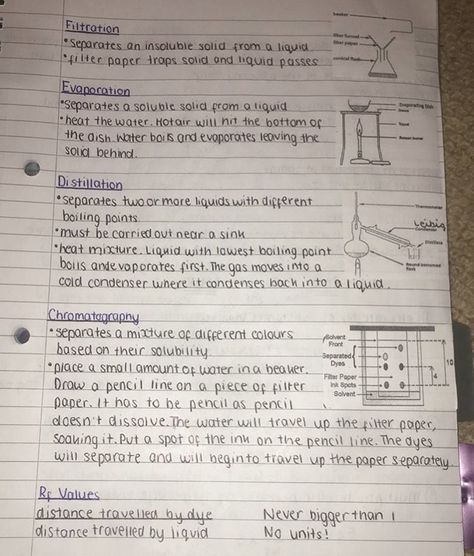 beaker
Filtration
filter funnel
•separates an insoluble solid from a liquid
filter paper
•filter paper traps solid and liquid passes
conical flask
Evaporation
•separates a soluble solid from a liquid
Evaporating Dish
•heat the water. Hot air will hit the bottom of
the dish. Water boils and evaporates leaving the
solid behind.
Distillation
•separates two or more liquids with different
Thermometer
boiling points.
Leibig
Condenser
•must be carried out near a sink
•heat mixture. Liquid with lowest boiling point
boils and evaporates first. The gas moves into a
cold condenser where it condenses back into a liquid.
Chromatography
•separates a mixture of different colours
based on their solubility.
Solvent
Front
Separated
Dyes
•place a small amount of water in a beaker.
Filter Paper
Ink Spots
Solvent
4
10
Draw a pencil line on a piece of filter
paper. It has to be pencil as pencil
doesn't dissolve. The water will travel up the filter paper,
soaking it. Put a spot of the ink on the pencil line. The dyes
will separate and will begin to travel up the paper separately
Rf Values
distance travelled by dye Never bigger than 1
distance travelled by liquid No units!